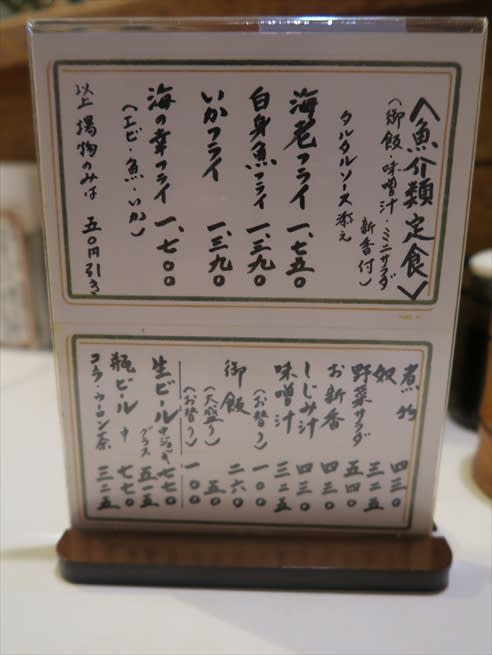 〈魚介類定食〉
(御飯・味噌汁・ミニサラダ
新香付)
タルタルソース添え
海老フライ 一、七五〇
白身魚フライ 一、三九〇
いかフライ 一、三九〇
海の幸フライ 一、七〇〇
(エビ・魚・いか)
以上 揚物のみは 五〇円引き
煮物 四三〇
奴 三二五
野菜サラダ 五四〇
お新香 四三〇
しじみ汁 四三〇
味噌汁 三二五
(お替り) 一〇〇
御飯 二六〇
(大盛り) 五〇
(お替り) 一〇〇
生ビール 中ジョッキ 七七〇
グラス 五一五
瓶ビール 中 七七〇
コーラ・ウーロン茶 三二五